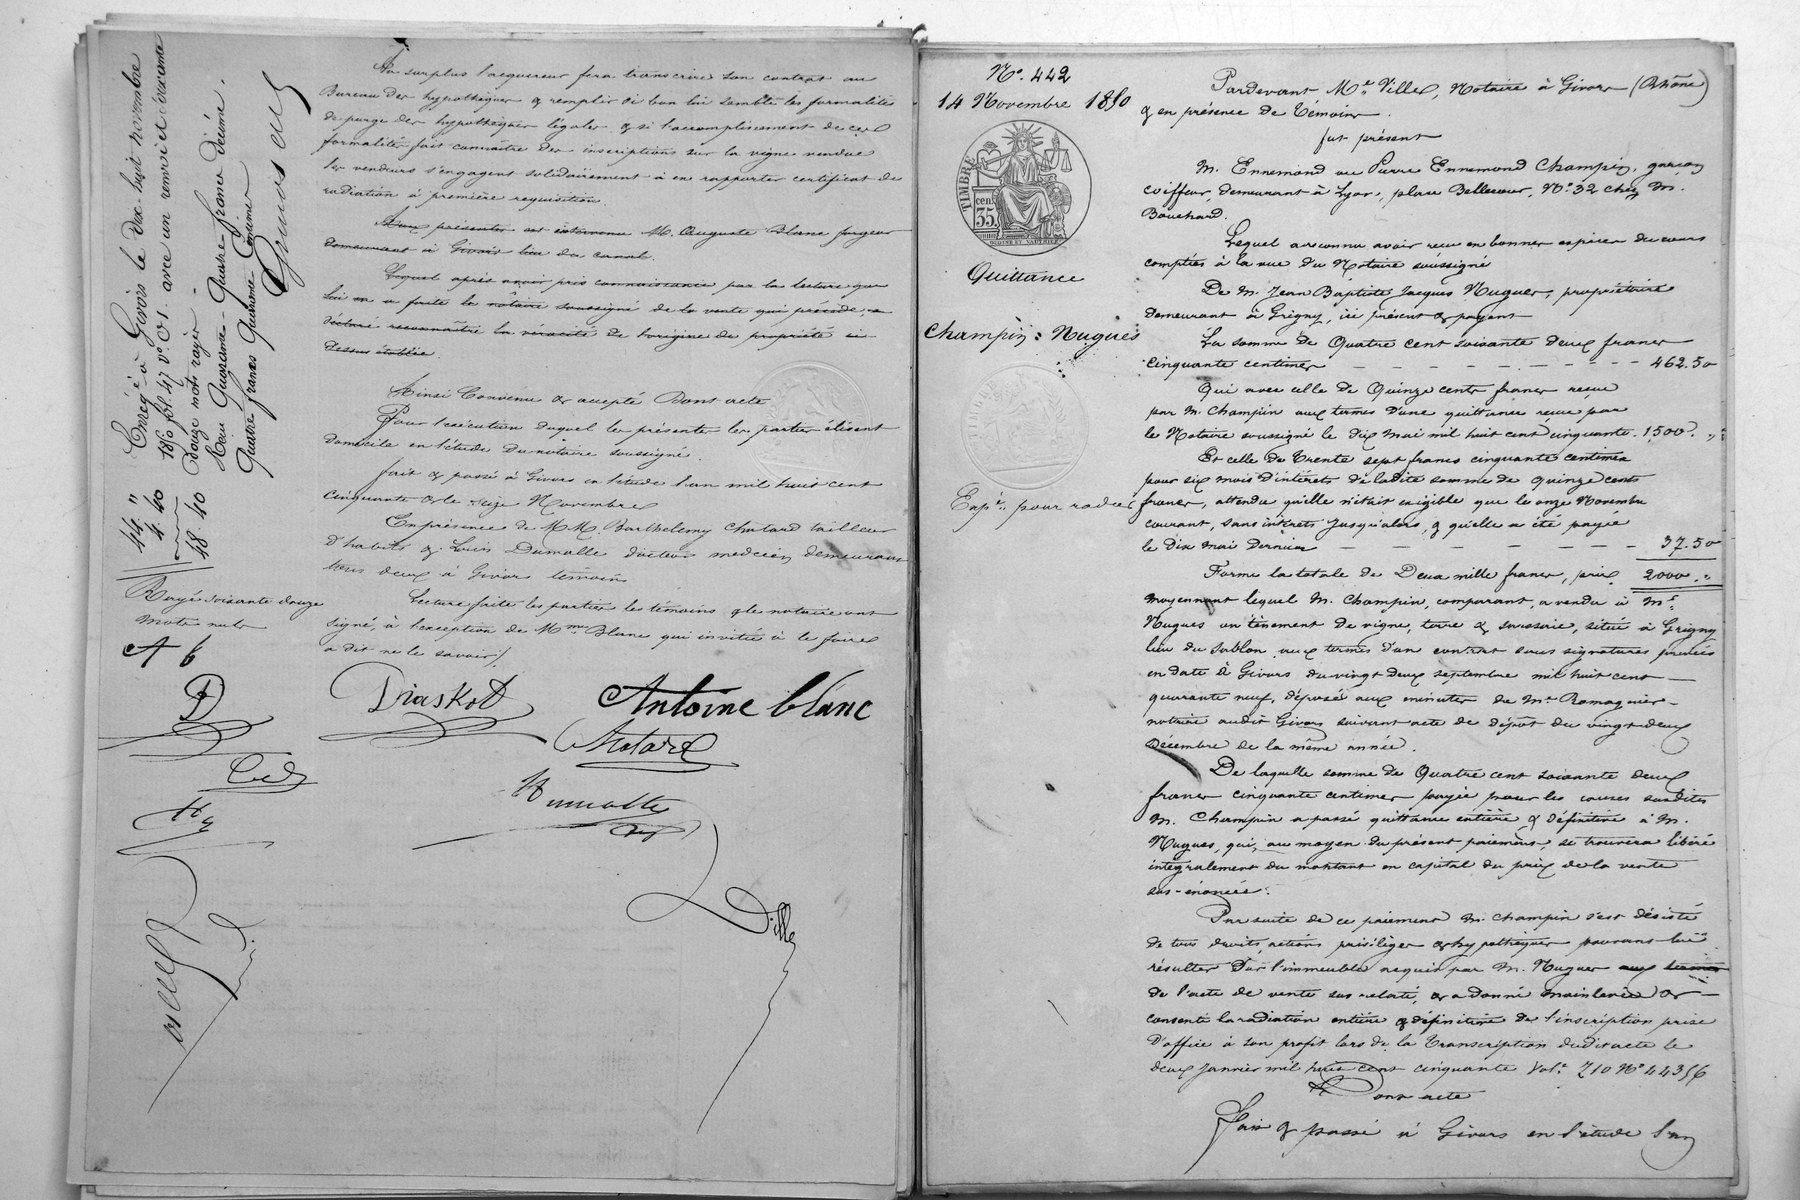 Au surplus l'acquereur fera transcrire son contrat au
Bureau des hypothèques & remplir si bon lui semble les formalités
de purge des hypothèques légales, & si l'accomplissement de ces
formalités fait connaître des inscriptions sur la vigne vendue
les vendeurs s'engagent solidairement à en rapporter certificat de
radiation à première requisition.
Aux présentes est intervenu M. Auguste Blanc forgeur
demeurant à Givors lieu du canal.
Lequel après avoir pris connaissance par la lecture que
lui en a faite le notaire soussigné de la vente qui précède, a
déclaré reconnaître la véracité de l'origine de propriété ci
dessus établie.
Ainsi Convenu & accepté Dont acte
Pour l'exécution duquel les présentes les parties élisent
domicile en l'étude du notaire soussigné.
fait & passé à Givors en l'étude l'an mil huit cent
cinquante & le seize Novembre
En présence de MM. Barthelemy Chatard tailleur
d'habits & Louis Dumolle docteur medecin demeurant
tous deux à Givors témoins
Lecture faite les parties les témoins & le notaire ont
signé, à l'exception de Mme Blanc qui invitée à le faire
a dit ne le savoir.
Enreg.é à Givors le dix-huit novembre
1850 fol. 47 v.° C. 1. avec un renvoi et
Douze mots rayés.
Reçu Quarante-Quatre francs décime
Quatre francs Quarante Centimes
44 "
4 40
48. 40
Rayé soixante douze
mots nuls
A b
D
Diaskot
Antoine blanc
Chatard
Ville
N°. 442
14 Novembre 1850
TIMBRE
35 cen.
Quittance
Champin : Nugues
Expé. pour radier
Pardevant Me. Ville, Notaire à Givors (Rhône)
& en présence de témoins.
fut présent
M. Ennemond ou Pierre Ennemond Champin, garçon
coiffeur, demeurant à Lyon, place Bellecour, N° 32 chez M.
Bouchard.
Lequel a reconnu avoir reçu en bonnes espèces du cours
comptées à la vue du Notaire soussigné
De M. Jean Baptiste Jacques Nugues, propriétaire
demeurant à Grigny, ici présent & payant
La somme de Quatre cent soixante deux francs
cinquante centimes — 462.50
Qui avec celle de Quinze cents francs reçue
par M. Champin aux termes d'une quittance reçue par
le Notaire soussigné le dix mai mil huit cent cinquante. 1500. "
Et celle de Trente sept francs cinquante centimes
pour six mois d'intérêts de ladite somme de quinze cents
francs, attendu qu'elle n'était exigible que le onze Novembre
courant, sans intérêts jusqu'alors, & qu'elle a été payée
le dix mai dernier — 37.50
Forme la totale de Deux mille francs, prix 2000. "
moyennant lequel M. Champin, comparant, a vendu à Mr.
Nugues un tènement de vigne, terre & saussaie, situé à Grigny
lieu du Sablon, aux termes d'un contrat sous signatures privées
en date à Givors du vingt deux septembre mil huit cent
quarante neuf, déposé aux minutes de Me Romagnier
notaire audit Givors suivant acte de dépôt du vingt deux
Décembre de la même année.
De laquelle somme de Quatre cent soixante deux
francs cinquante centimes payée pour les causes susdites
M. Champin a passé quittance entière & définitive à M.
Nugues, qui, au moyen du présent paiement, se trouvera libéré
intégralement du montant en capital du prix de la vente
sus-énoncée.
Par suite de ce paiement M. Champin s'est désisté
de tous droits, actions privilèges & hypothèques pouvant lui
résulter sur l'immeuble acquis par M. Nugues aux termes
de l'acte de vente sus relaté, & a donné mainlevée &
consenti la radiation entière & définitive de l'inscription prise
d'office à son profit lors de la transcription dudit acte le
deux janvier mil huit cent cinquante Vol. 210 N° 44356
Dont acte
Fait & passé à Givors en l'étude l'an